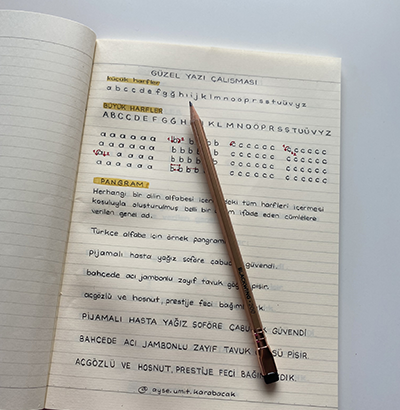 GÜZEL YAZI ÇALIŞMASI
küçük harfler
a b c ç d e f g ğ h ı i j k l m n o ö p r s ş t u ü v y z
BÜYÜK HARFLER
A B C Ç D E F G Ğ H K L M N O Ö P R S Ş T U Ü V Y Z
a a a a a a b b b b c c c c c c ç ç ç ç ç
a a a a a a b b b b c c c c c c ç ç ç ç ç ç
a a a a a b b b b c c c c c c ç ç ç ç ç ç
a a a a a a b b b b c c c c c c ç ç ç ç ç ç
PANGRAM:
Herhangi bir dilin alfabesi tüm harfleri içermesi
koşuluyla oluşturulmuş belli bir ifade eden cümlelere
verilen genel ad.
Türkçe alfabe için örnek pangram
pijamalı hasta yağız şoföre çabu güvendi.
bahçede acı jambonlu zayıf tavuk pişir.
açgözlü ve hoşnut, prestije feci bağım
PİJAMALI HASTA YAĞIZ ŞOFÖRE ÇABU GÜVENDİ
BAHÇEDE ACI JAMBONLU ZAYIF TAVUK PİŞİR.
AÇGÖZLÜ VE HOŞNUT, PRESTİJE FECİ BAĞIM DIK.
@ayse.umit.karabacak